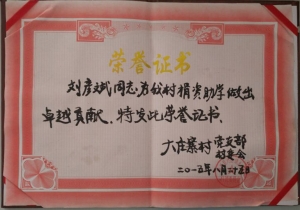 荣誉证书
刘彦斌同志:为我村捐资助学做出
卓越贡献,特发此荣誉证书。
大庄寨村党支部
村委会
二〇一五年八月廿五日